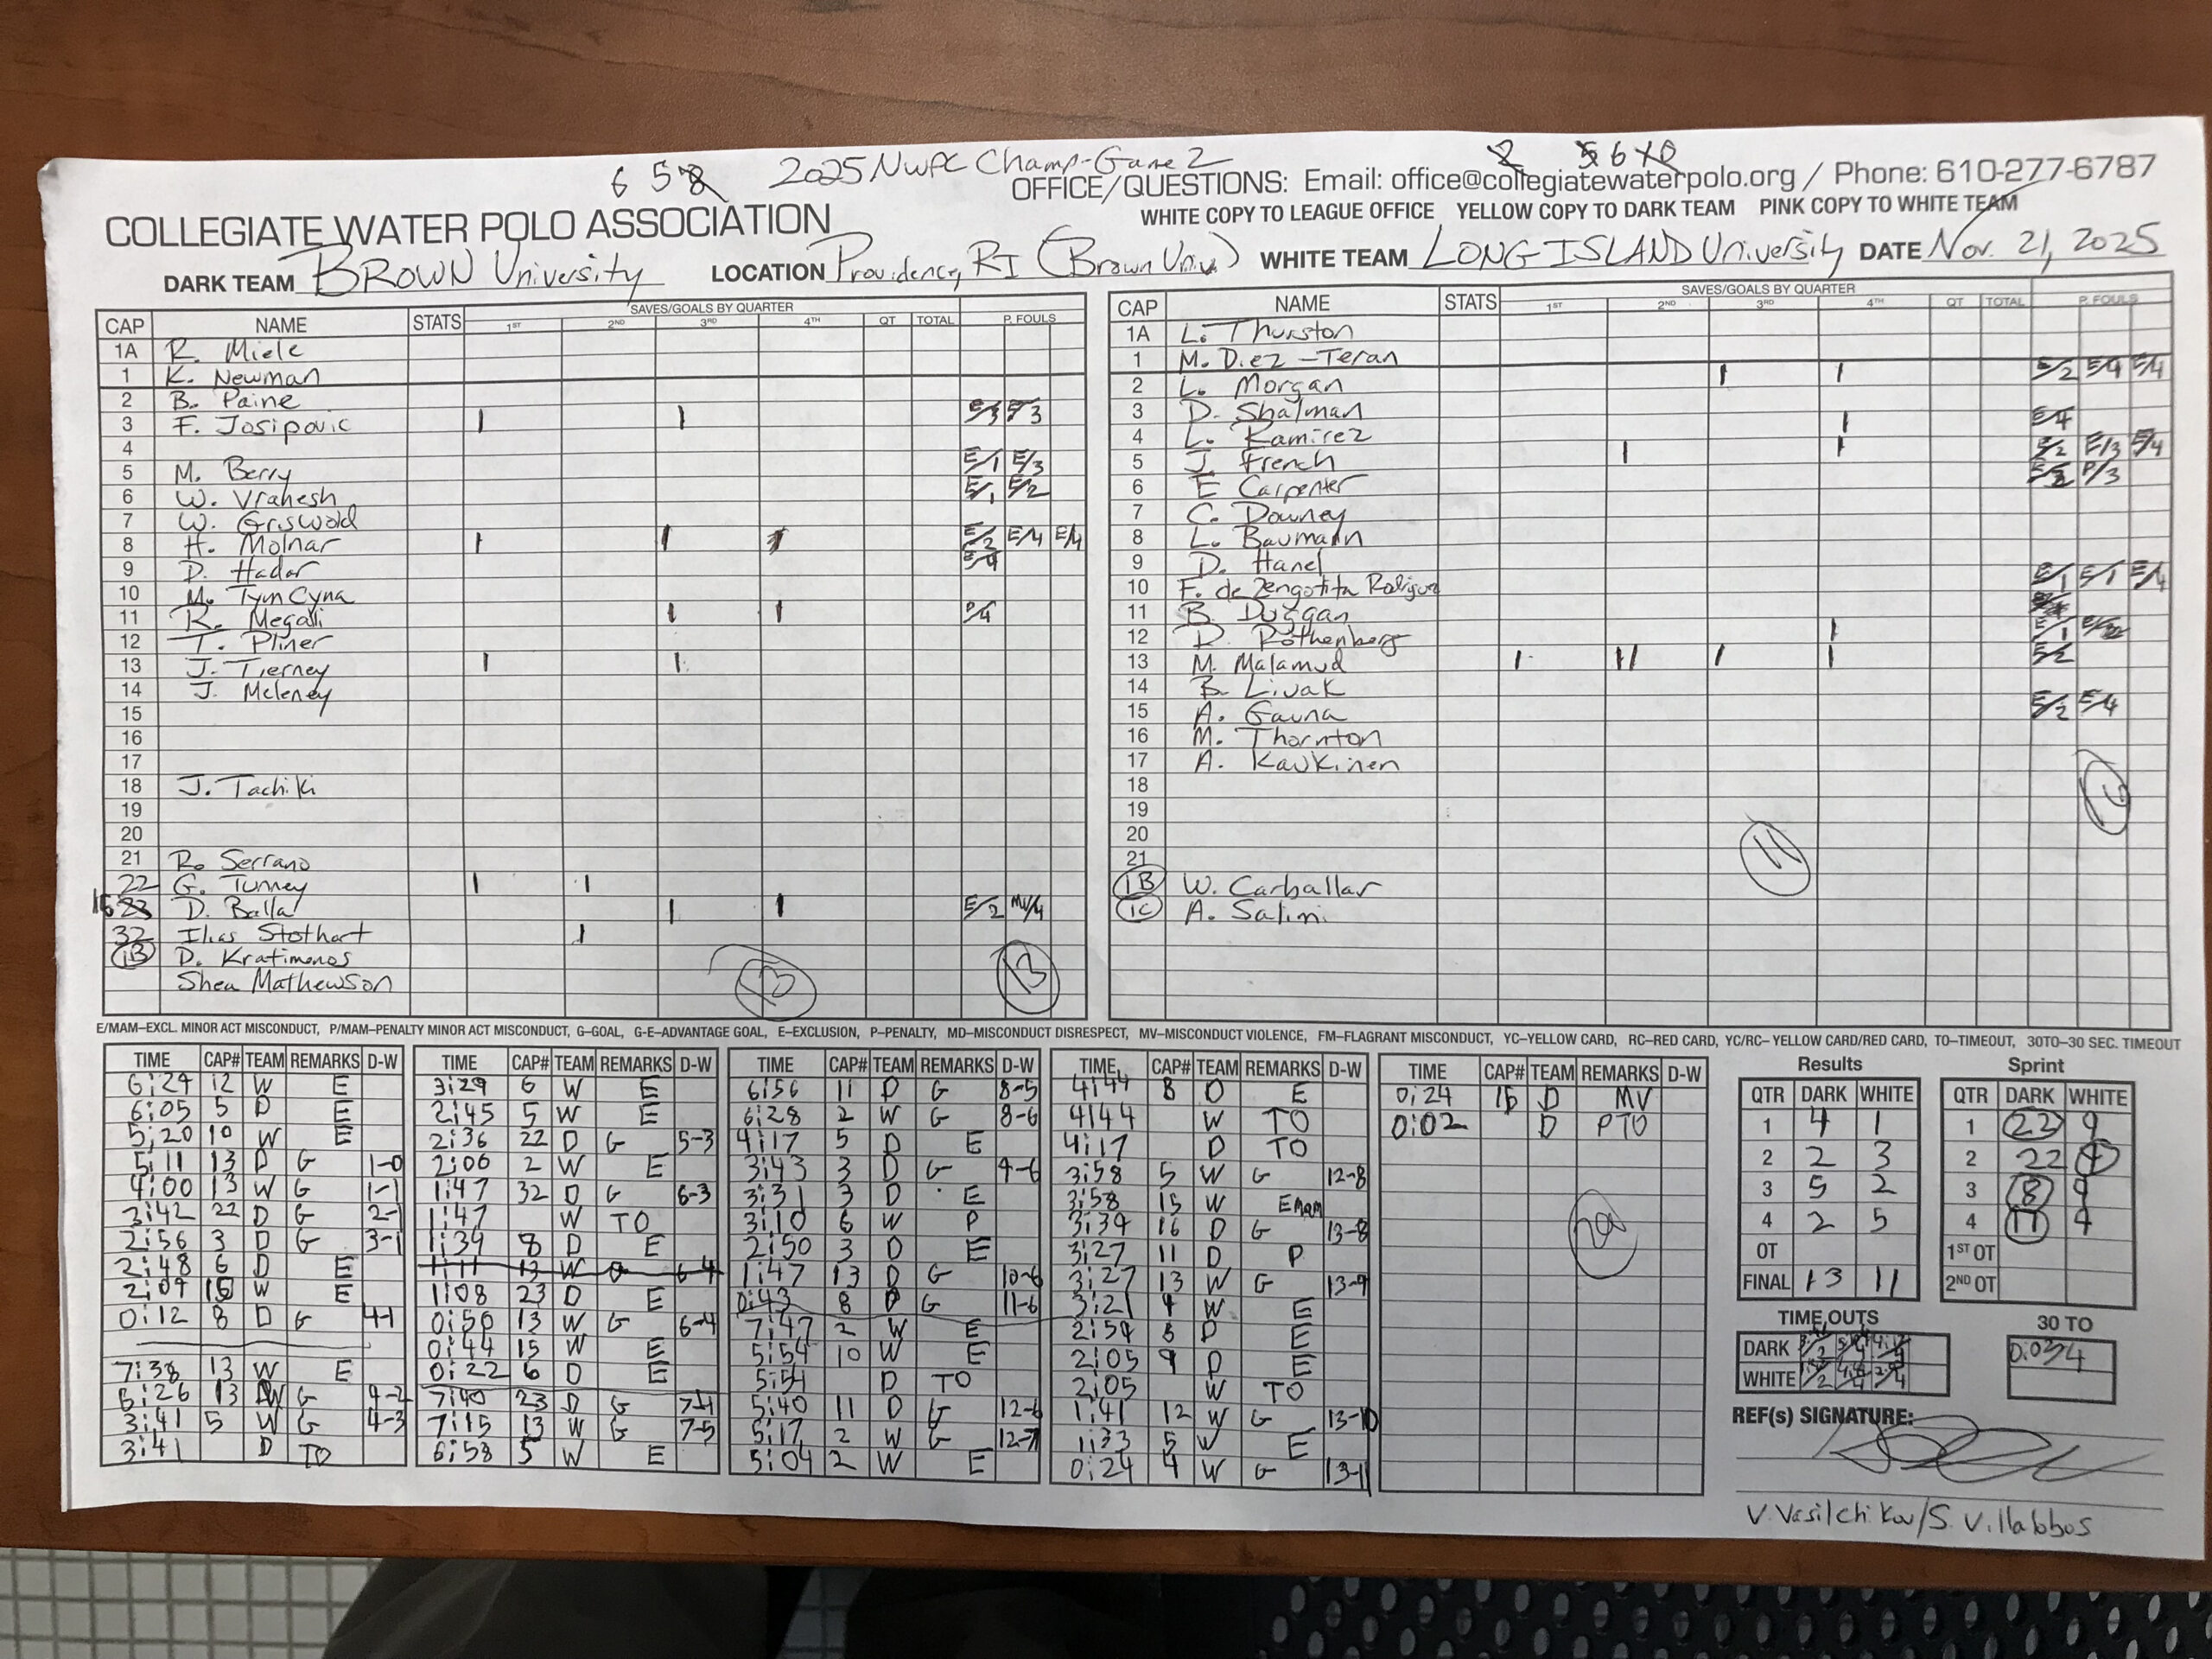 6 5 8 2025 NWPC Champ-Game 2 2 5 6 10
OFFICE/QUESTIONS: Email: office@collegiatewaterpolo.org / Phone: 610-277-6787
COLLEGIATE WATER POLO ASSOCIATION WHITE COPY TO LEAGUE OFFICE YELLOW COPY TO DARK TEAM PINK COPY TO WHITE TEAM
DARK TEAM BROWN University LOCATION Providence, RI (Brown Univ.) WHITE TEAM LONG ISLAND University DATE Nov. 21, 2025
CAP NAME STATS SAVES/GOALS BY QUARTER 1ST 2ND 3RD 4TH QT TOTAL P. FOULS
1A R. Miele
1 K. Newman
2 B. Paine
3 F. Josipovic I I E/3 E/3
4
5 M. Berry E/1 E/3
6 W. Vrahesh E/1 E/2
7 W. Griswold
8 H. Molnar I I E/2 E/4 E/4
9 D. Hadar E/4
10 M. Tym Cyna
11 R. Megalli I I P/4
12 T. Pliner
13 J. Tierney I I
14 J. McLeney
15
16
17
18 J. Tachiki
19
20
21 R. Serrano
22 G. Tunney I I
16 23 D. Balla I I E/2 MV/4
32 Ilias Stothart I
1B D. Kratimenos
Shea Mathewson
13 13
CAP NAME STATS SAVES/GOALS BY QUARTER 1ST 2ND 3RD 4TH QT TOTAL P. FOULS
1A L. Thurston
1 M. Diez-Teran
2 L. Morgan I I E/2 E/4 E/4
3 D. Shalman
4 L. Ramirez I E/4
5 J. French I I E/2 E/3 E/4
6 E Carpenter E/2 P/3
7 C. Downey
8 L. Baumann
9 D. Hanel
10 F. de Zengotita Rodrigue E/1 E/1 E/4
11 B. Duggan
12 D. Rothenberg I E/1
13 M. Malamud I II I I E/2
14 B. Livak
15 A. Gauna E/2 E/4
16 M. Thornton
17 A. Kaukinen
18
19
20
21
1B W. Carballar
1C A. Salimi
11
E/MAM–EXCL. MINOR ACT MISCONDUCT, P/MAM–PENALTY MINOR ACT MISCONDUCT, G–GOAL, G-E–ADVANTAGE GOAL, E–EXCLUSION, P–PENALTY, MD–MISCONDUCT DISRESPECT, MV–MISCONDUCT VIOLENCE, FM–FLAGRANT MISCONDUCT, YC–YELLOW CARD, RC–RED CARD, YC/RC– YELLOW CARD/RED CARD, TO–TIMEOUT, 30TO–30 SEC. TIMEOUT
TIME CAP# TEAM REMARKS D-W
6:29 12 W E
6:05 5 D E
5:20 10 W E
5:11 13 D G 1-0
4:00 13 W G 1-1
3:42 22 D G 2-1
2:56 3 D G 3-1
2:48 6 D E
2:09 10 W E
0:12 8 D G 4-1
7:38 13 W E
6:26 13 W G 4-2
3:41 5 W G 4-3
3:41 D TO
TIME CAP# TEAM REMARKS D-W
3:29 6 W E
2:45 5 W E
2:36 22 D G 5-3
2:06 2 W E
1:47 32 D G 6-3
1:47 W TO
1:39 8 D E
1:11 13 W G 6-4
1:08 23 D E
0:50 13 W G 6-4
0:44 15 W E
0:22 6 D E
7:40 23 D G 7-4
7:15 13 W G 7-5
6:58 5 W E
TIME CAP# TEAM REMARKS D-W
6:56 11 D G 8-5
6:28 2 W G 8-6
4:17 5 D E
3:43 3 D G 9-6
3:31 3 D E
3:10 6 W P
2:50 3 D E
1:47 13 D G 10-6
0:43 8 D G 11-6
7:47 2 W E
5:54 10 W E
5:54 D TO
5:40 11 D G 12-6
5:17 2 W G 12-7
5:04 2 W E
TIME CAP# TEAM REMARKS D-W
4:44 8 D E
4:44 W TO
4:17 D TO
3:58 5 W G 12-8
3:58 15 W Emam
3:39 16 D G 13-8
3:27 11 D P
3:27 13 W G 13-9
3:21 4 W E
2:54 8 D E
2:05 9 D E
2:05 W TO
1:41 12 W G 13-10
1:33 5 W E
0:24 4 W G 13-11
TIME CAP# TEAM REMARKS D-W
0:24 16 D MV
0:02 D PTO
Results
QTR DARK WHITE
1 4 1
2 2 3
3 5 2
4 2 5
OT
FINAL 13 11
Sprint
QTR DARK WHITE
1 22 9
2 22 9
3 8 9
4 11 4
1ST OT
2ND OT
TIME OUTS
DARK
WHITE
30 TO
REF(s) SIGNATURE:
V. Vasilchikov/S. Villalobos